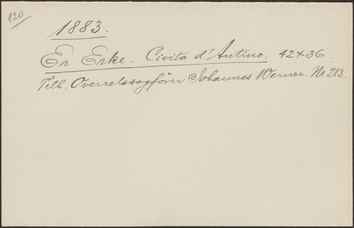 120
1883.
En Enke. Civita d'Antino. 42×36
Tilh. Overretssagfører Johannes Werner. No 213.